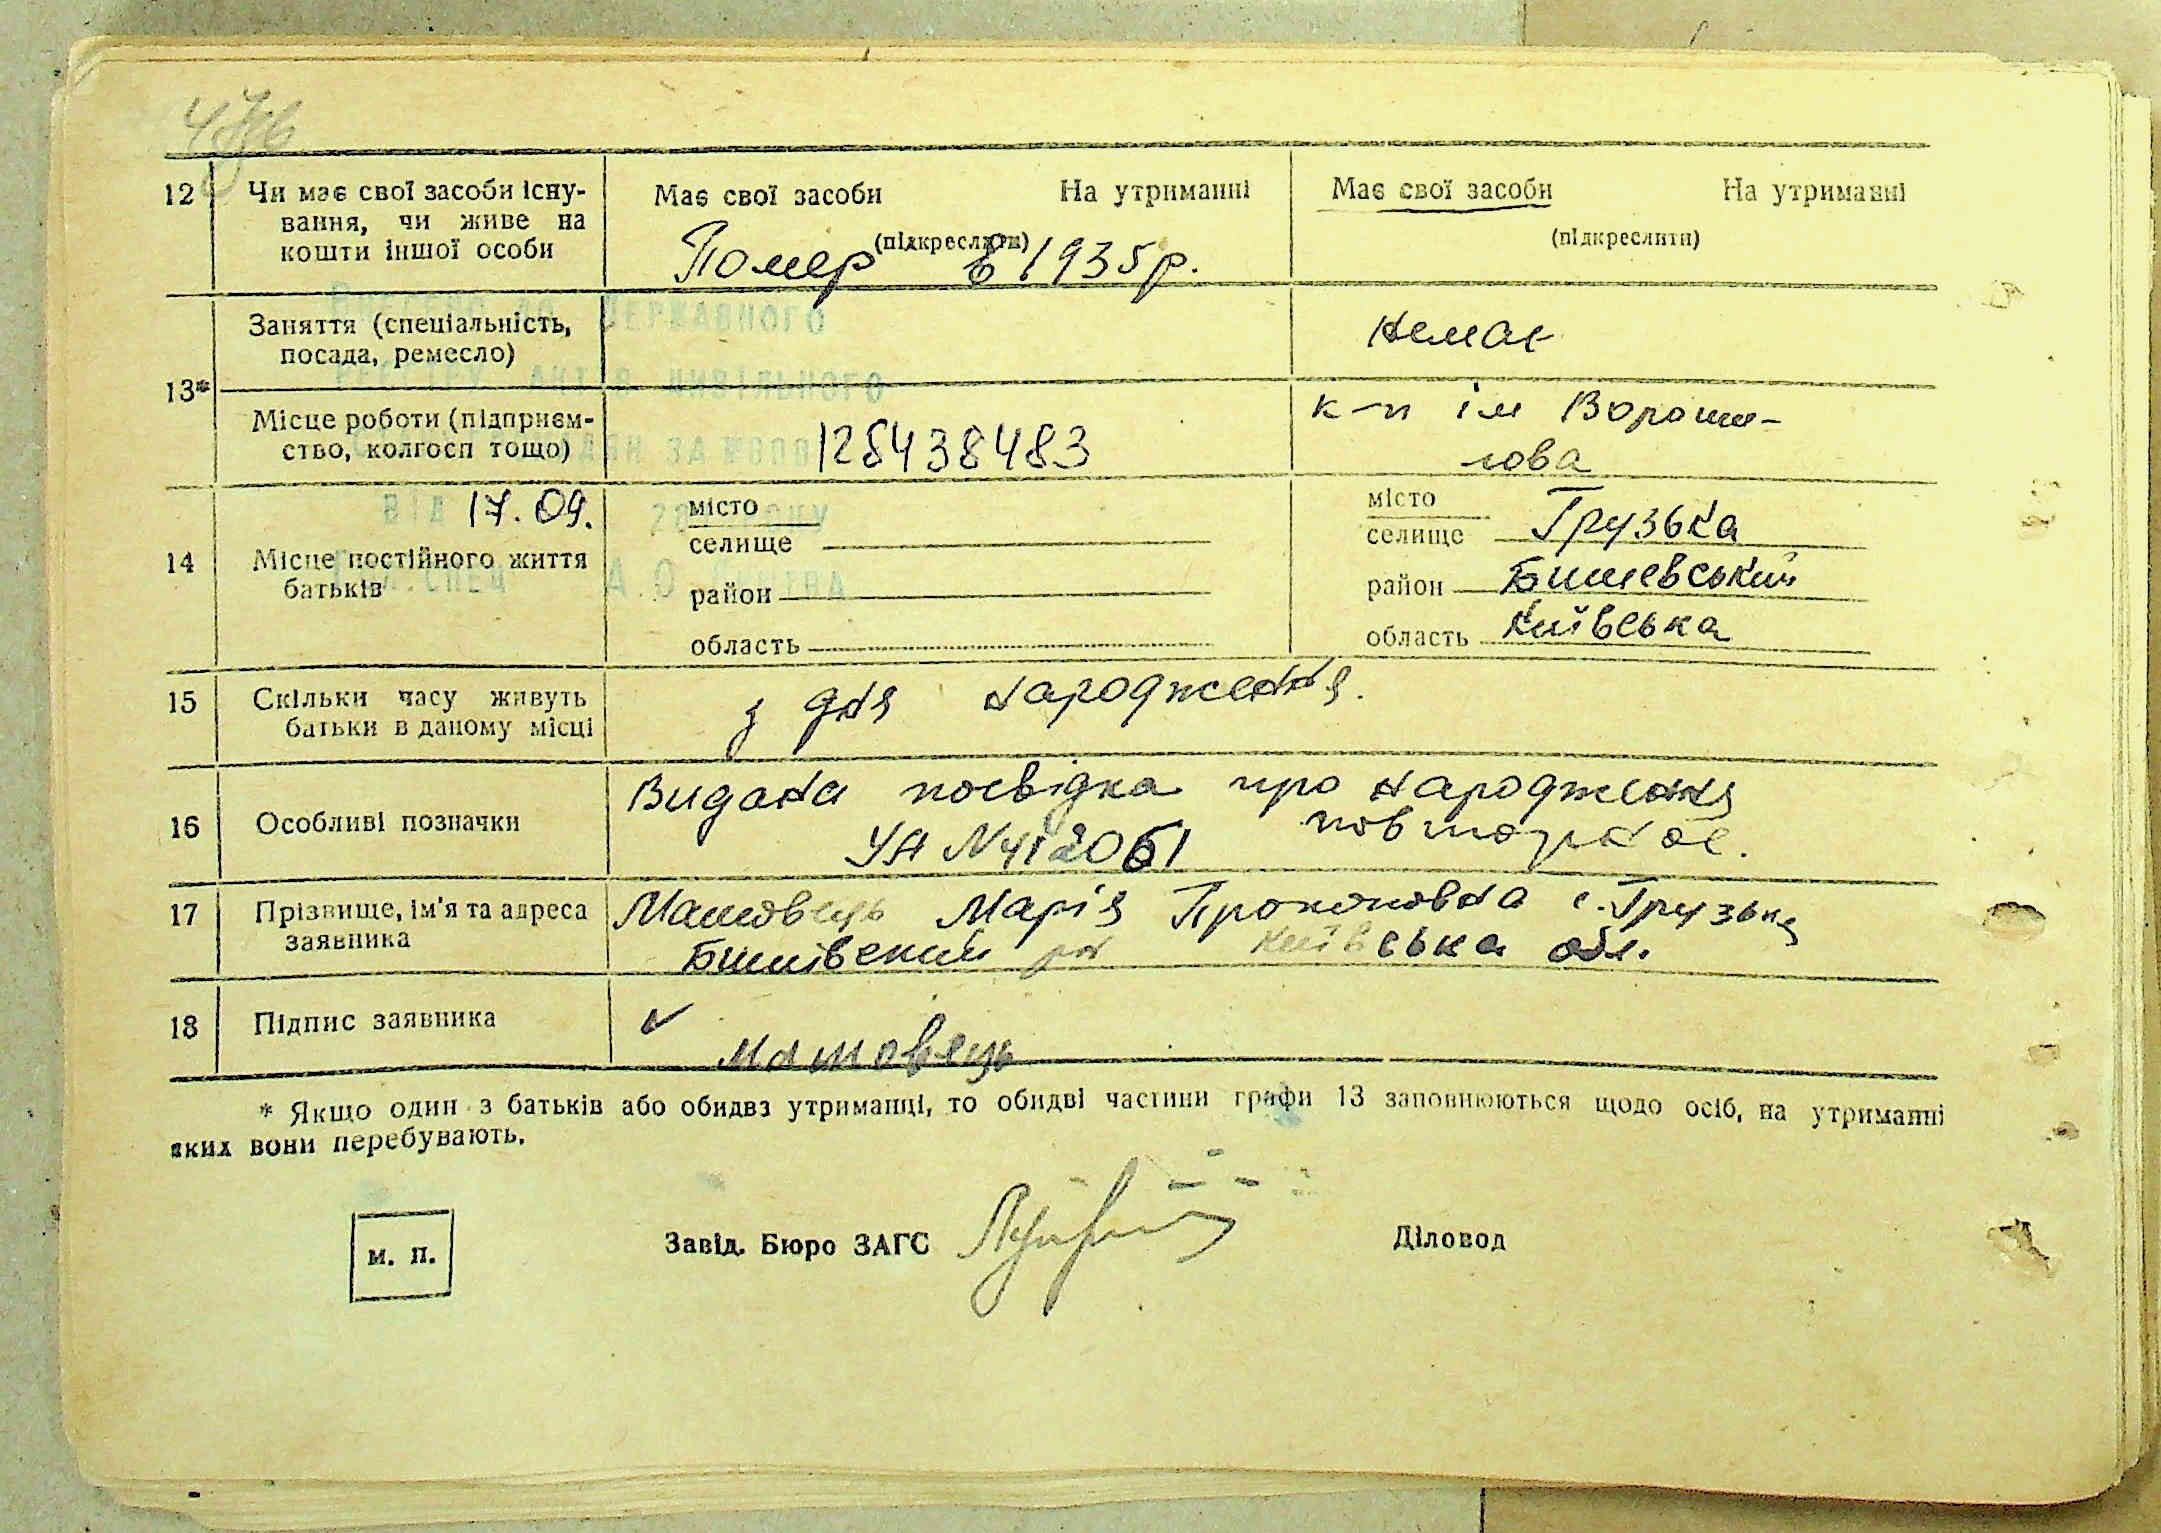 12 Чи має свої засоби існу- Має свої засоби На утриманні Має свої засоби На утриманні
вання, чи живе на (підкреслити) (підкреслити)
кошти іншої особи Помер в 1935 р.
ДЕРЖАВНОГО
Заняття (спеціальність, немає
посада, ремесло)
13*
АКТІВ ЦИВІЛЬНОГО
Місце роботи (підприєм- к-п ім Вороши-
ство, колгосп тощо) ЗА № 128438483 лова
ВІД 17.09.
14 Місце постійного життя
батьків
місто
селище
район
область
місто
селище Грузька
район Бишевський
область Київська
15 Скільки часу живуть з дня народження.
батьки в даному місці
16 Особливі позначки Видана посвідка про народження
УА N 412061 повторное.
17 Прізвище, ім'я та адреса Матовець Марія Прокоповна с. Грузька
заявника Бишівский рн Київська обл.
18 Підпис заявника ✓
Матовець
* Якщо один з батьків або обидва утриманці, то обидві частини графи 13 заповнюються щодо осіб, на утриманні
яких вони перебувають.
м. п. Завід. Бюро ЗАГС Діловод